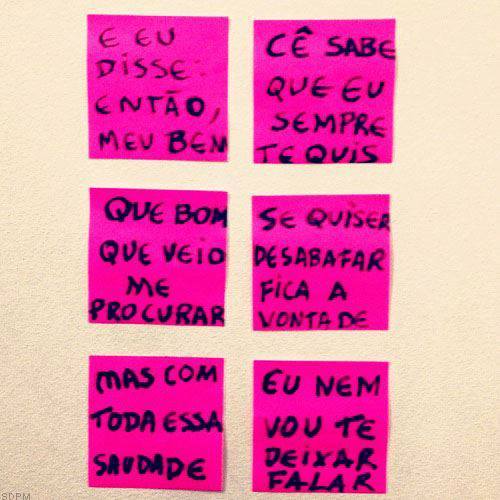 E EU
DISSE:
ENTÃO,
MEU BEM
CÊ SABE
QUE EU
SEMPRE
TE QUIS
QUE BOM
QUE VEIO
ME
PROCURAR
SE QUISER
DESABAFAR
FICA A
VONTADE
MAS COM
TODA ESSA
SAUDADE
EU NEM
VOU TE
DEIXAR
FALAR
SDPM